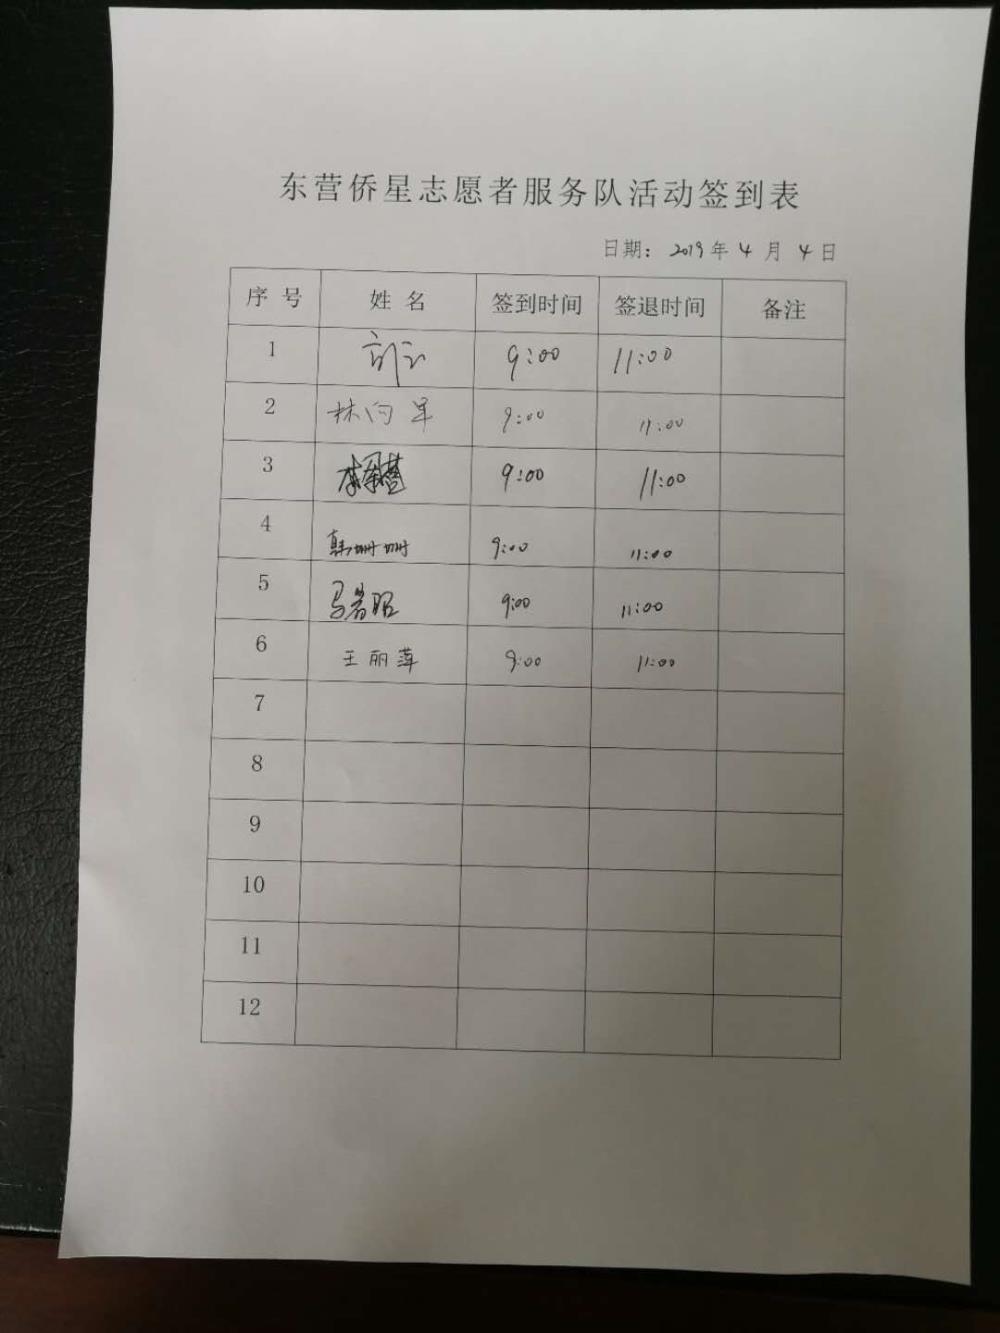 东营侨星志愿者服务队活动签到表
日期：2019年4月4日
序号 姓名 签到时间 签退时间 备注
1 9:00 11:00
2 林向军 9:00 11:00
3 9:00 11:00
4 韩姗姗 9:00 11:00
5 9:00 11:00
6 王丽萍 9:00 11:00
7
8
9
10
11
12